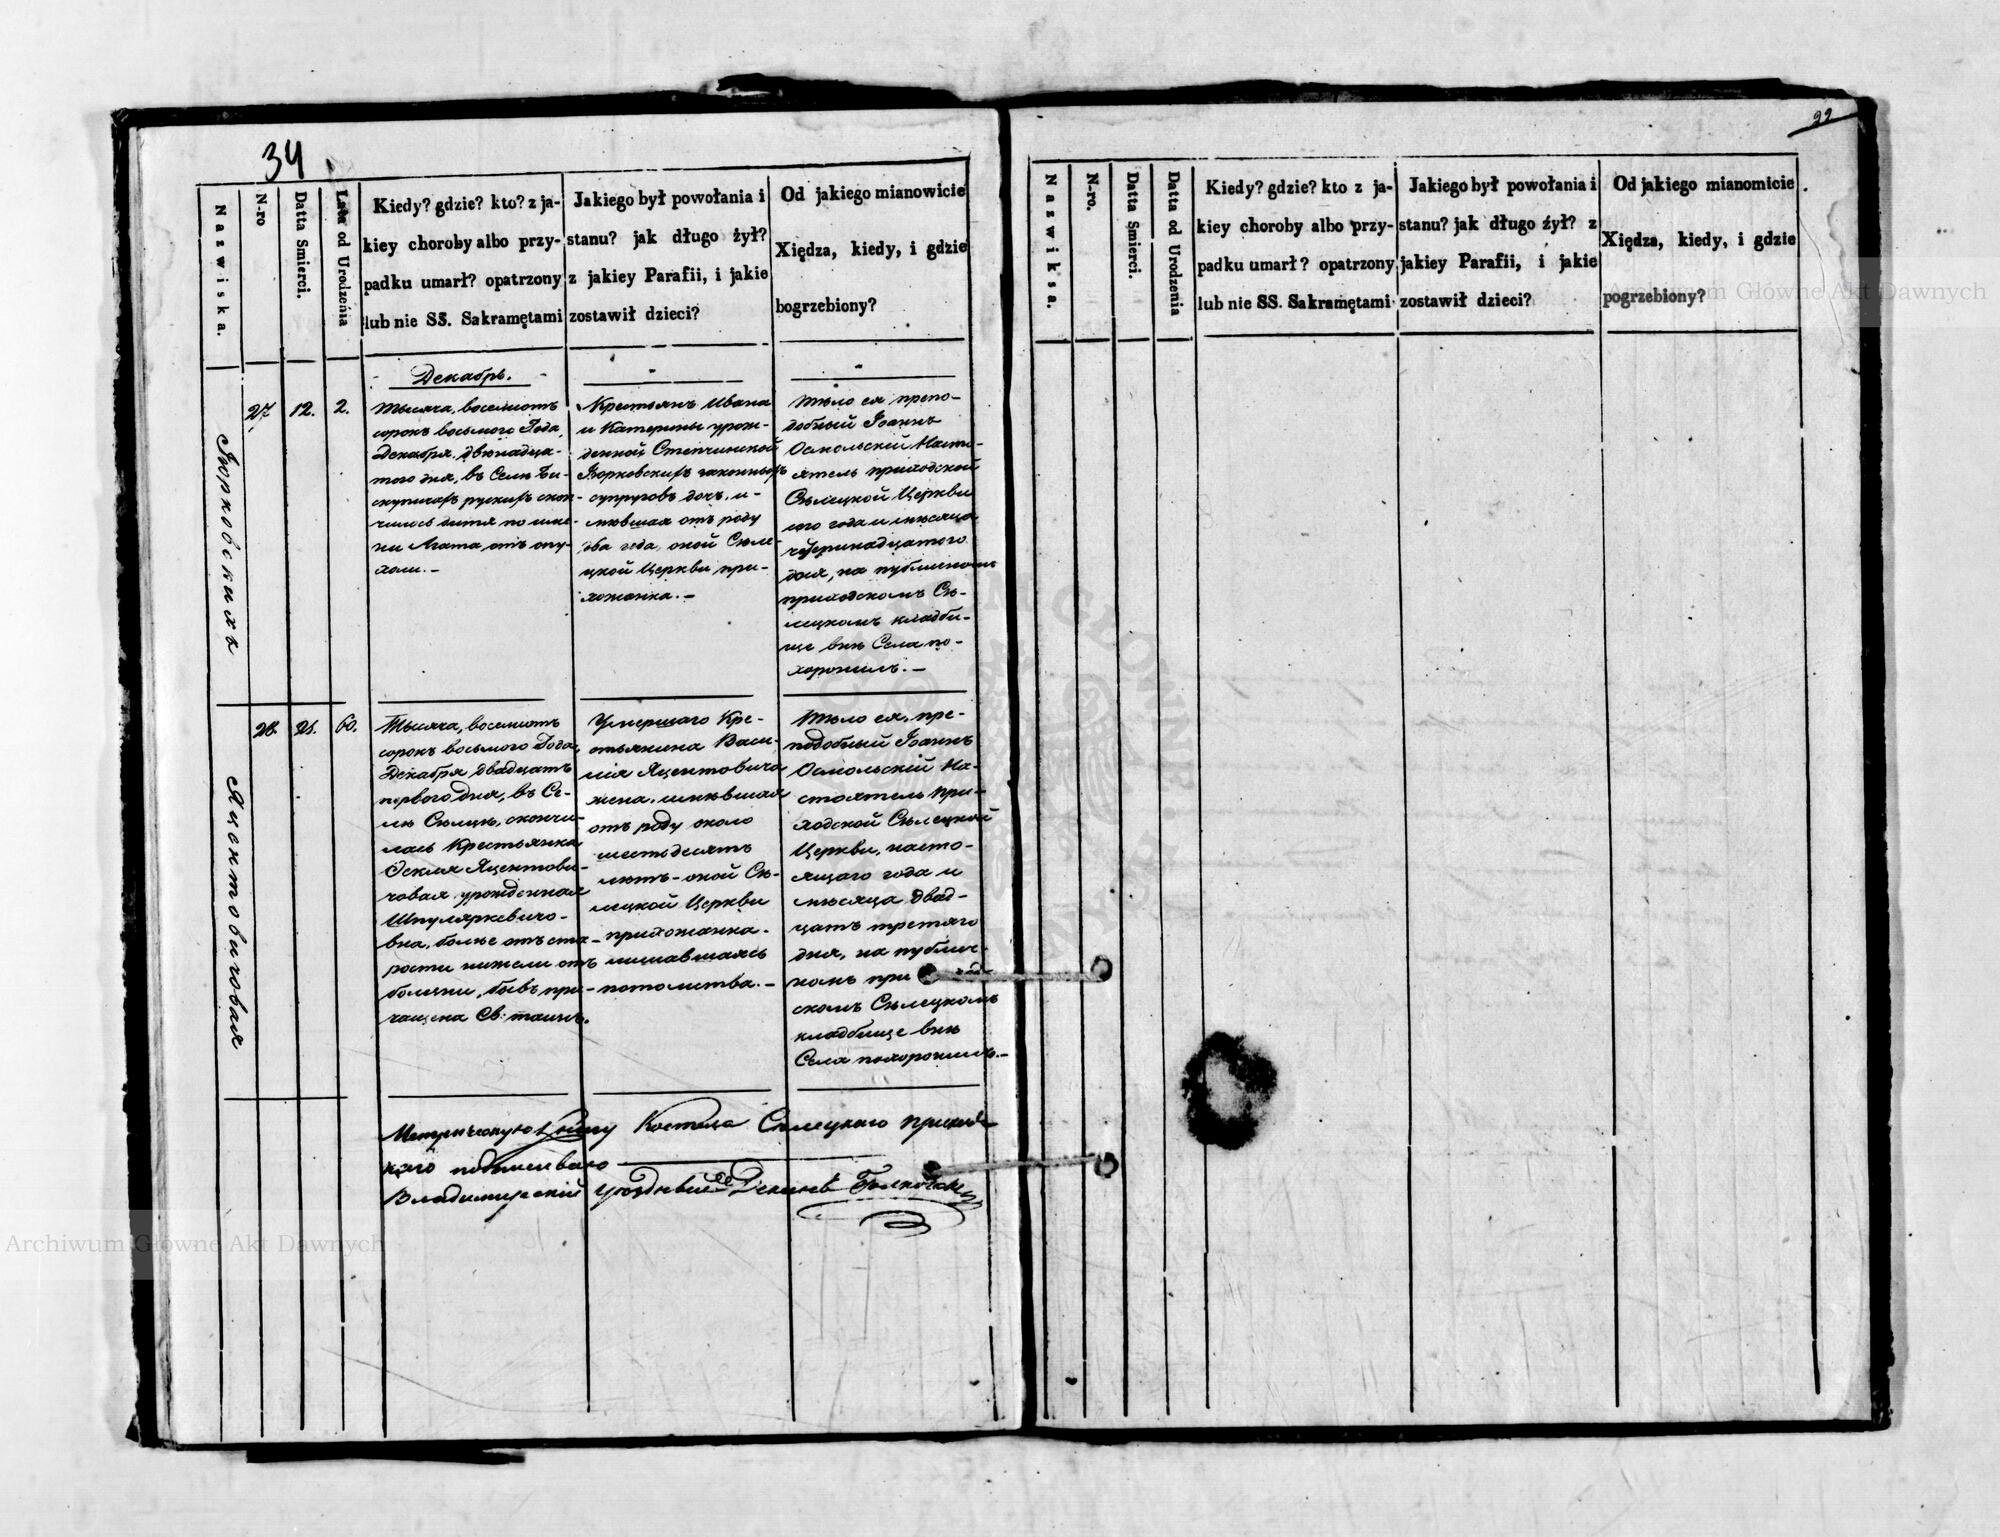 34
Nazwiska.
N-ro
Datta Smierci.
Lata od Urodzenia
Kiedy? gdzie? kto? z ja-
kiey choroby albo przy-
padku umarł? opatrzony
lub nie SS. Sakramętami
Jakiego był powołania i
stanu? jak długo żył?
z jakiey Parafii, i jakie
zostawił dzieci?
Od jakiego mianowicie
Xiędza, kiedy, i gdzie
bogrzebiony?
Декабрь.
27
12.
2.
Тысяча, восемьсотъ
сорокъ восьмого Года,
Декабря, двѣнадца-
того дня, въ Селѣ Би-
скупичахъ рускихъ скон-
чилось дитя по име-
ни Агата, отъ опу-
холи. –
Крестьянъ Ивана
и Катерины урож-
денной Степчинской
законныхъ
супруговъ дочь, и-
мѣвшая отъ роду
два года, оной Сѣле-
цкой Церкви при-
хожанка. –
Тѣло ея препо-
добный Іоаннъ
Осмольскій Насто-
ятель приходской
Сѣлецкой Церкви
сего года и мѣсяца
четыринадцатого
дня, на публичномъ
приходскомъ Сѣ-
лецкомъ кладби-
ще внѣ Села по-
хоронилъ. –
28.
21.
60.
Яцентовичовая
Тысяча, восемьсотъ
сорокъ восьмого Года,
Декабря двадцать
первого дня, въ Се-
лѣ Сѣльцѣ, скончи-
лась Крестьянка
Яцентови-
човая урожденная
Шпуляркевичо-
вна, болѣе отъ ста-
рости нижели отъ
болезни, бывъ при-
чащена Св: таинъ.
Умершаго Кре-
стьянина Васи-
лія Яцентовича
жена, имѣвшая
отъ роду около
шестьдесятъ
лѣтъ - оной Сѣ-
лецкой Церкви
прихожанка.
лишавшаясь
потомства. –
Тѣло ея, пре-
подобный Іоаннъ
Осмольскій На-
стоятель при-
ходской Сѣлецкой
Церкви, насто-
ящаго года и
мѣсяца двад-
цать третяго
дня, на публич-
номъ приход
скомъ Сѣлецкомъ
кладбище внѣ
Села похоронилъ. –
Метрическую Книгу Костела Сѣлецкаго приход-
скаго подписываю
Владимирскій уѣздный Деканъ
22
Nazwiksa.
N-ro.
Datta Smierci.
Datta od Urodzenia
Kiedy? gdzie? kto z ja-
kiey choroby albo przy-
padku umarł? opatrzony
lub nie SS. Sakramętami
Jakiego był powołania i
stanu? jak długo żył? z
jakiey Parafii, i jakie
zostawił dzieci?
Od jakiego mianomicie
Xiędza, kiedy, i gdzie
pogrzebiony?
Archiwum Główne Akt Dawnych
Archiwum Główne Akt Dawnych